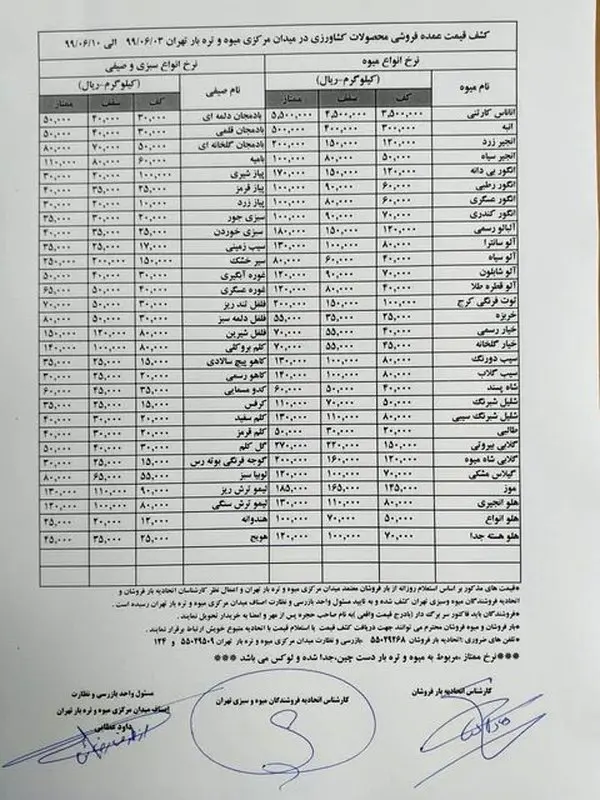 کشف قیمت عمده فروشی محصولات کشاورزی در میدان مرکزی میوه و تره بار تهران ۹۹/۰۶/۰۳ الی ۹۹/۰۶/۱۰
نرخ انواع میوه نرخ انواع سبزی و صیفی
نام میوه (کیلوگرم-ریال) نام صیفی (کیلوگرم-ریال)
کف سقف ممتاز کف سقف ممتاز
آناناس کارتنی ۳,۵۰۰,۰۰۰ ۴,۵۰۰,۰۰۰ ۵,۵۰۰,۰۰۰ بادمجان دلمه ای ۳۰,۰۰۰ ۴۰,۰۰۰ ۵۰,۰۰۰
انبه ۳۰۰,۰۰۰ ۴۰۰,۰۰۰ ۵۰۰,۰۰۰ بادمجان قلمی ۳۰,۰۰۰ ۴۰,۰۰۰ ۵۰,۰۰۰
انجیر زرد ۱۲۰,۰۰۰ ۱۵۰,۰۰۰ ۲۰۰,۰۰۰ بادمجان گلخانه ای ۵۰,۰۰۰ ۷۰,۰۰۰ ۸۰,۰۰۰
انجیر سیاه ۵۰,۰۰۰ ۸۰,۰۰۰ ۱۰۰,۰۰۰ بامیه ۶۰,۰۰۰ ۸۰,۰۰۰ ۱۱۰,۰۰۰
انگور بی دانه ۱۲۰,۰۰۰ ۱۵۰,۰۰۰ ۱۷۰,۰۰۰ پیاز شیری ۱۰,۰۰۰ ۲۰,۰۰۰ ۳۰,۰۰۰
انگور رطبی ۶۰,۰۰۰ ۹۰,۰۰۰ ۱۰۰,۰۰۰ پیاز قرمز ۲۵,۰۰۰ ۳۵,۰۰۰ ۴۰,۰۰۰
انگور عسگری ۶۰,۰۰۰ ۸۰,۰۰۰ ۱۰۰,۰۰۰ پیاز زرد ۱۰,۰۰۰ ۲۰,۰۰۰ ۳۰,۰۰۰
انگور کندری ۷۰,۰۰۰ ۹۰,۰۰۰ ۱۰۰,۰۰۰ سبزی جور ۲۰,۰۰۰ ۳۰,۰۰۰ ۳۵,۰۰۰
آلبالو رسمی ۱۲۰,۰۰۰ ۱۵۰,۰۰۰ ۱۸۰,۰۰۰ سبزی خوردن ۲۵,۰۰۰ ۳۵,۰۰۰ ۴۰,۰۰۰
آلو سانترا ۸۰,۰۰۰ ۱۰۰,۰۰۰ ۱۳۰,۰۰۰ سیب زمینی ۱۷,۰۰۰ ۲۵,۰۰۰ ۳۵,۰۰۰
آلو سیاه ۴۰,۰۰۰ ۶۰,۰۰۰ ۸۰,۰۰۰ سیر خشک ۱۵۰,۰۰۰ ۲۰۰,۰۰۰ ۲۵۰,۰۰۰
آلو شابلون ۷۰,۰۰۰ ۹۰,۰۰۰ ۱۲۰,۰۰۰ غوره آبگیری ۳۰,۰۰۰ ۴۰,۰۰۰ ۵۰,۰۰۰
آلو قطره طلا ۴۰,۰۰۰ ۸۰,۰۰۰ ۱۲۰,۰۰۰ غوره عسگری ۴۰,۰۰۰ ۵۰,۰۰۰ ۶۵,۰۰۰
توت فرنگی کرج ۱۰۰,۰۰۰ ۱۵۰,۰۰۰ ۲۰۰,۰۰۰ فلفل تند ریز ۳۰,۰۰۰ ۵۰,۰۰۰ ۷۰,۰۰۰
خربزه ۲۵,۰۰۰ ۳۵,۰۰۰ ۵۵,۰۰۰ فلفل دلمه سبز ۳۰,۰۰۰ ۵۰,۰۰۰ ۸۰,۰۰۰
خیار رسمی ۴۰,۰۰۰ ۵۵,۰۰۰ ۷۰,۰۰۰ فلفل شیرین ۸۰,۰۰۰ ۱۲۰,۰۰۰ ۱۵۰,۰۰۰
خیار گلخانه ۴۵,۰۰۰ ۵۵,۰۰۰ ۷۰,۰۰۰ کلم بروکلی ۸۰,۰۰۰ ۱۰۰,۰۰۰ ۱۴۰,۰۰۰
سیب دورنگ ۸۰,۰۰۰ ۱۰۰,۰۰۰ ۱۳۰,۰۰۰ کاهو پیچ سالادی ۱۵,۰۰۰ ۲۵,۰۰۰ ۳۵,۰۰۰
سیب گلاب ۸۰,۰۰۰ ۱۰۰,۰۰۰ ۱۴۰,۰۰۰ کاهو رسمی ۲۰,۰۰۰ ۳۰,۰۰۰ ۴۰,۰۰۰
شاه پسند ۴۰,۰۰۰ ۵۰,۰۰۰ ۶۰,۰۰۰ کدو مسمایی ۳۵,۰۰۰ ۴۵,۰۰۰ ۶۰,۰۰۰
شلیل شبرنگ ۵۰,۰۰۰ ۷۰,۰۰۰ ۱۱۰,۰۰۰ کرفس ۱۵,۰۰۰ ۲۵,۰۰۰ ۳۵,۰۰۰
شلیل شبرنگ سیبی ۸۰,۰۰۰ ۱۱۰,۰۰۰ ۱۳۰,۰۰۰ کلم سفید ۲۰,۰۰۰ ۳۰,۰۰۰ ۴۰,۰۰۰
طالبی ۲۰,۰۰۰ ۳۰,۰۰۰ ۵۰,۰۰۰ کلم قرمز ۲۰,۰۰۰ ۳۰,۰۰۰ ۴۰,۰۰۰
گلابی بیروتی ۱۵۰,۰۰۰ ۲۲۰,۰۰۰ ۲۷۰,۰۰۰ گل کلم ۳۰,۰۰۰ ۴۰,۰۰۰ ۵۰,۰۰۰
گلابی شاه میوه ۱۲۰,۰۰۰ ۱۶۰,۰۰۰ ۲۰۰,۰۰۰ گوجه فرنگی بوته رس ۱۵,۰۰۰ ۲۵,۰۰۰ ۳۰,۰۰۰
گیلاس مشکی ۷۰,۰۰۰ ۱۰۰,۰۰۰ ۱۲۰,۰۰۰ لوبیا سبز ۵۵,۰۰۰ ۶۵,۰۰۰ ۸۰,۰۰۰
موز ۱۴۵,۰۰۰ ۱۶۵,۰۰۰ ۱۸۵,۰۰۰ لیمو ترش ریز ۹۰,۰۰۰ ۱۱۰,۰۰۰ ۱۳۰,۰۰۰
هلو انجیری ۸۰,۰۰۰ ۱۱۰,۰۰۰ ۱۳۰,۰۰۰ لیمو ترش سنگی ۸۰,۰۰۰ ۱۰۰,۰۰۰ ۱۲۰,۰۰۰
هلو انواع ۵۰,۰۰۰ ۷۰,۰۰۰ ۱۰۰,۰۰۰ هندوانه ۱۲,۰۰۰ ۲۰,۰۰۰ ۲۵,۰۰۰
هلو هسته جدا ۷۰,۰۰۰ ۱۰۰,۰۰۰ ۱۲۰,۰۰۰ هویج ۲۵,۰۰۰ ۳۵,۰۰۰ ۴۵,۰۰۰
*قیمت های مذکور بر اساس استعلام روزانه از بار فروشان معتمد میدان مرکزی میوه و تره بار تهران و اعمال نظر کارشناسان اتحادیه بار فروشان و
اتحادیه فروشندگان میوه وسبزی تهران کشف شده و به تایید مسئول واحد بازرسی و نظارت اصناف میدان مرکزی میوه و تره بار تهران رسیده است .
*فروشندگان باید فاکتور سر برگه دار (بادرج قیمت واقعی )به نام صاحب حجره پس از مهر و امضا به خریدار تحویل نمایند .
*بار فروشان و میوه فروشان محترم می توانند جهت دریافت کشف قیمت یا استعلام قیمت با اتحادیه متبوع خویش ارتباط برقرار نمایند .
*تلفن های ضروری :اتحادیه بار فروشان ۵۵۰۲۹۲۶۸ بازرسی و نظارت میدان مرکزی میوه و تره بار تهران ۵۵۰۲۹۵۰۹ و ۱۲۴
***نرخ ممتاز ،مربوط به میوه و تره بار دست چین،جدا شده و لوکس می باشد ***
کارشناس اتحادیه بار فروشان
کارشناس اتحادیه فروشندگان میوه و سبزی تهران
مسئول واحد بازرسی و نظارت
اصناف میدان مرکزی میوه و تره بار تهران
داود عظامی